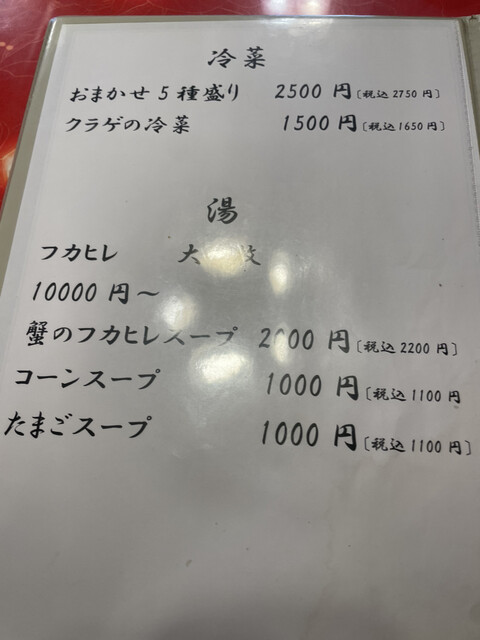 冷菜
おまかせ5種盛り 2500円〔税込2750円〕
クラゲの冷菜 1500円〔税込1650円〕
湯
フカヒレ 大 枚
10000円～
蟹のフカヒレスープ 2000円〔税込2200円〕
コーンスープ 1000円〔税込1100円
たまごスープ 1000円〔税込1100円〕